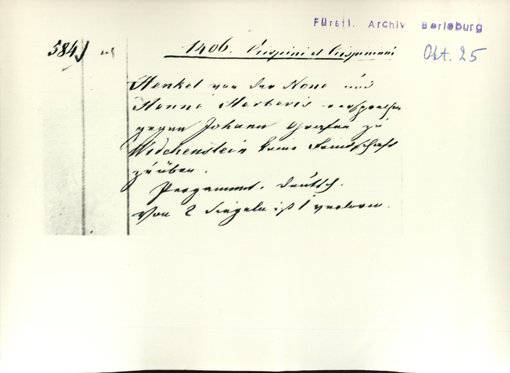 Fürstl. Archiv Berleburg
Okt. 25
584)
1406. Crispini et Crispiniani
Henkel von der Hone und
Henne Herberis versprechen
gegen Johann Grafen zu
Widchenstein keine Feindschaft
zu üben.
Pergament. Deutsch.
Von 2 Siegeln ist 1 verloren.